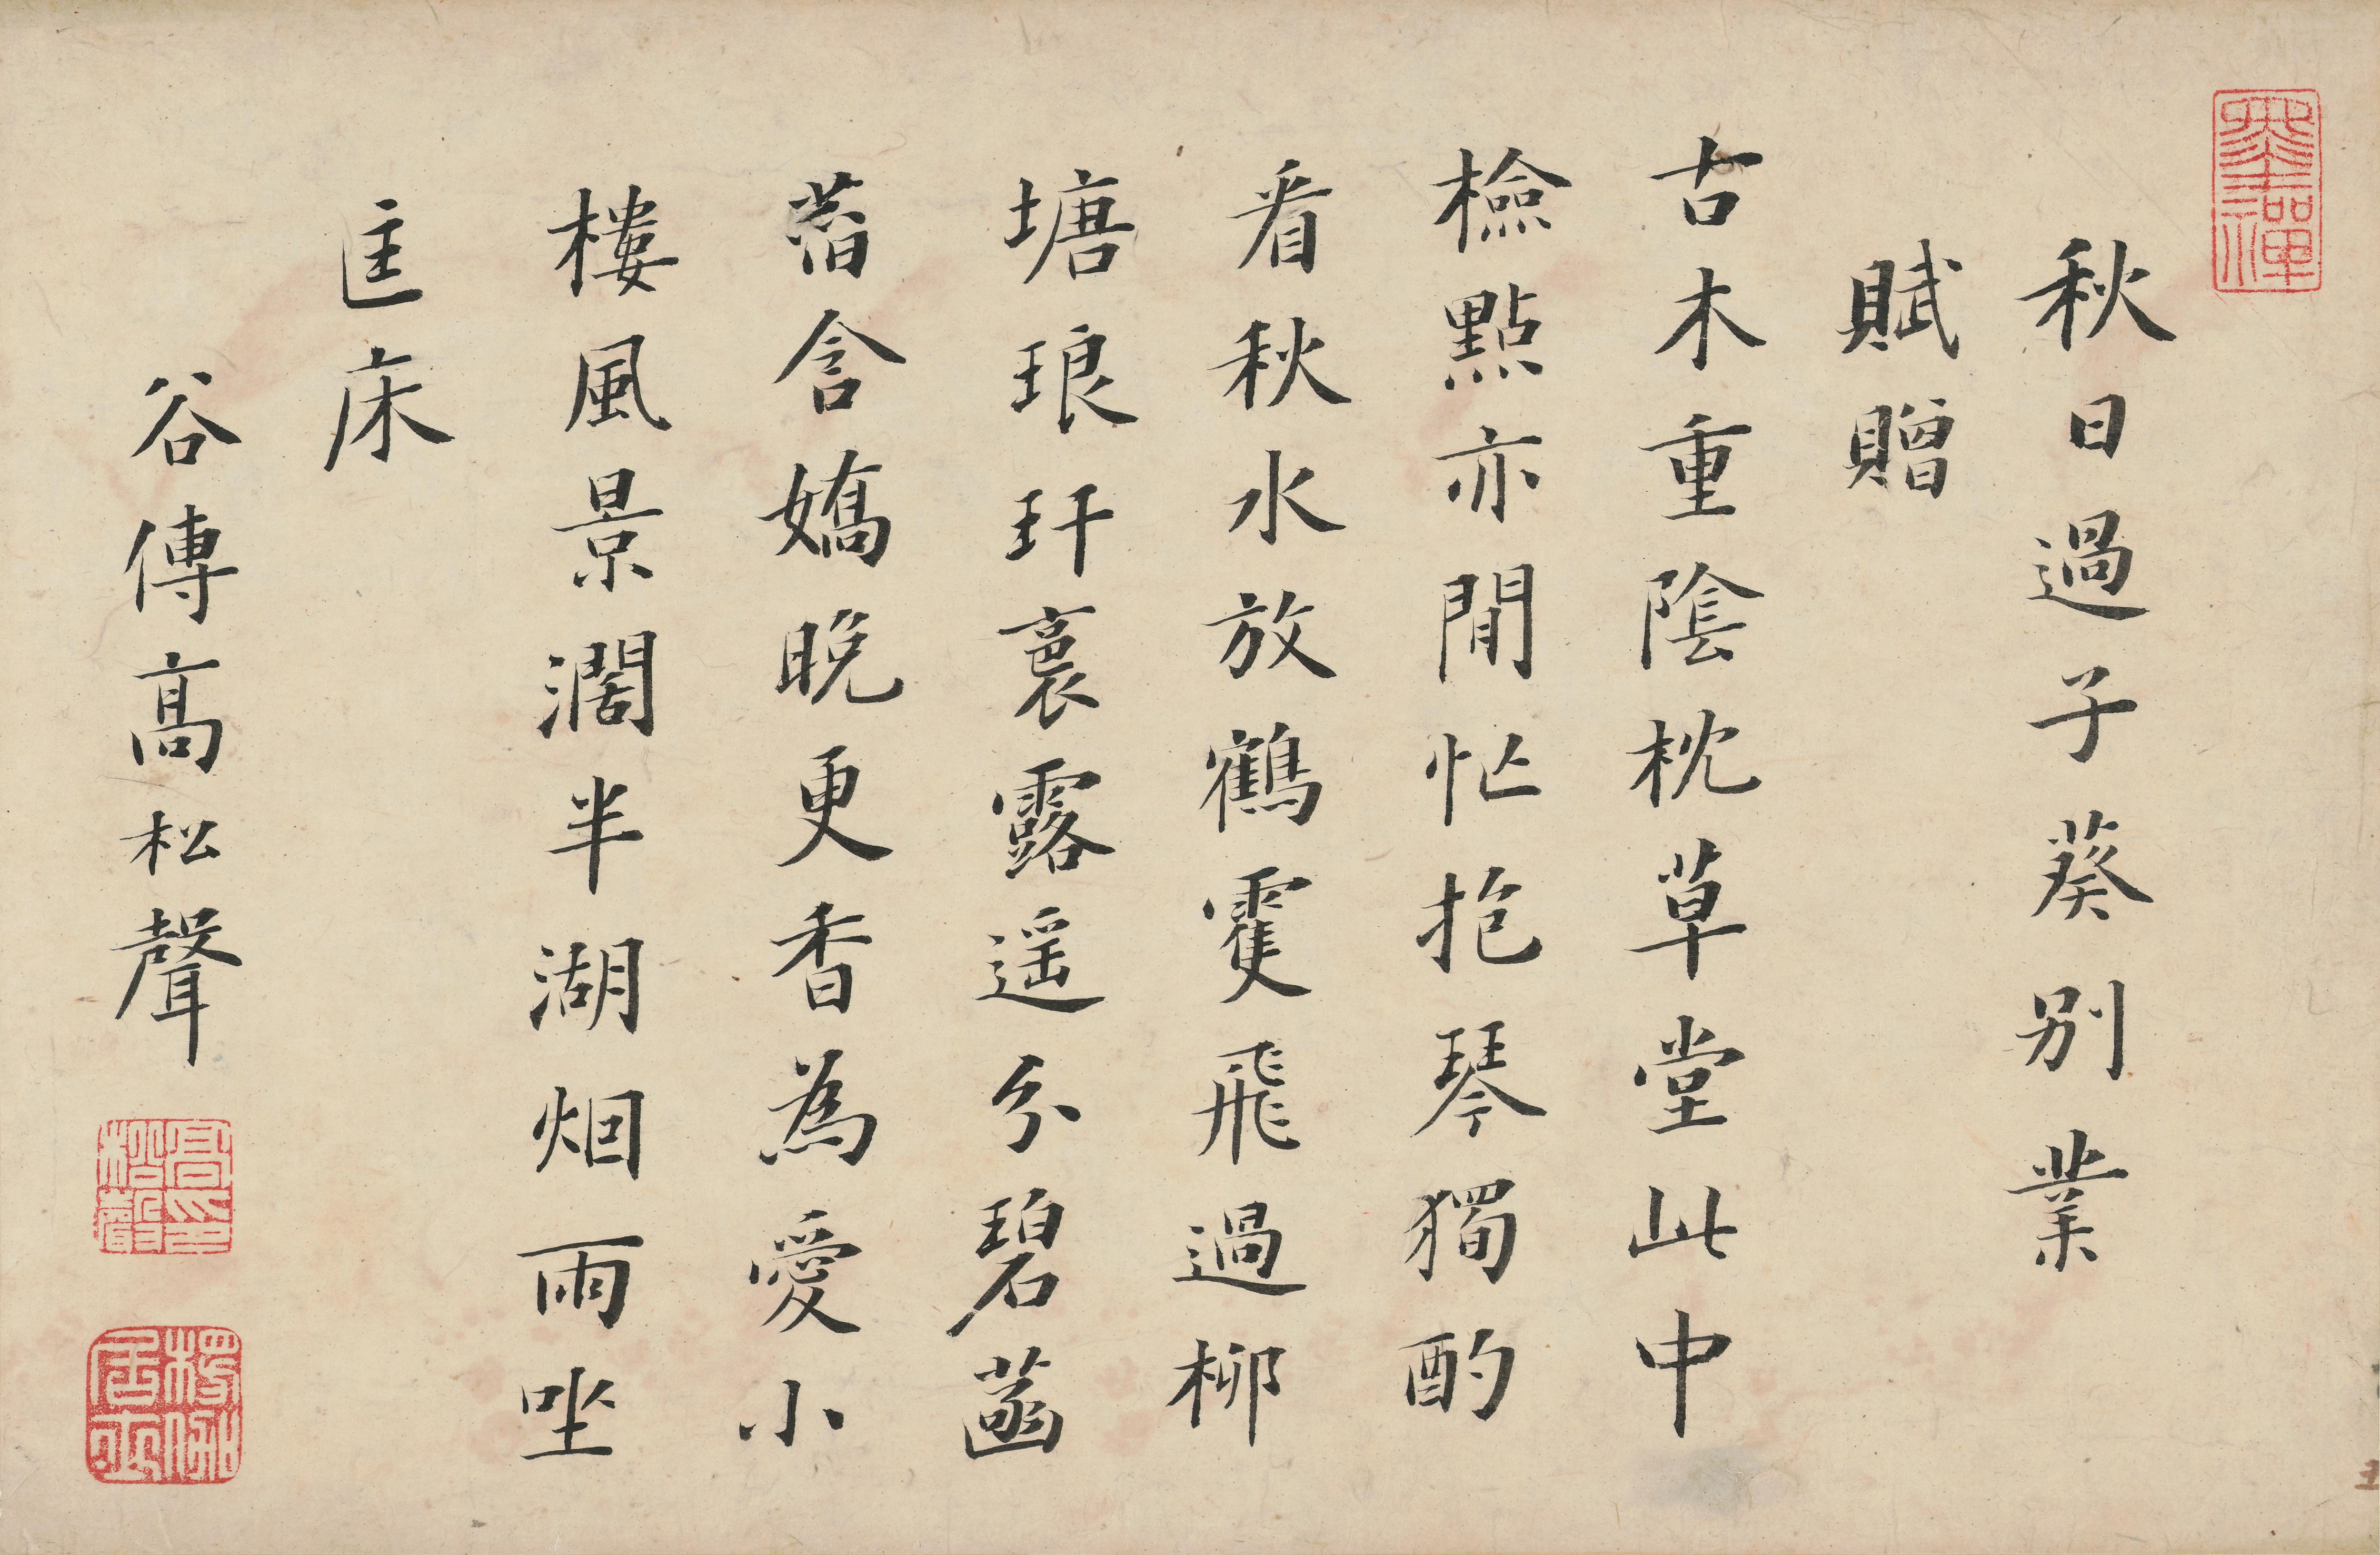 秋日過子葵別業
賦贈
古木重陰枕草堂此中
檢點亦閒忙抱琴獨酌
看秋水放鶴霎飛過柳
塘琅玕裛露遥分碧菡
萏含嬌晚更香為愛小
樓風景濶半湖烟雨坐
匡床
谷傳高松聲
高松聲印